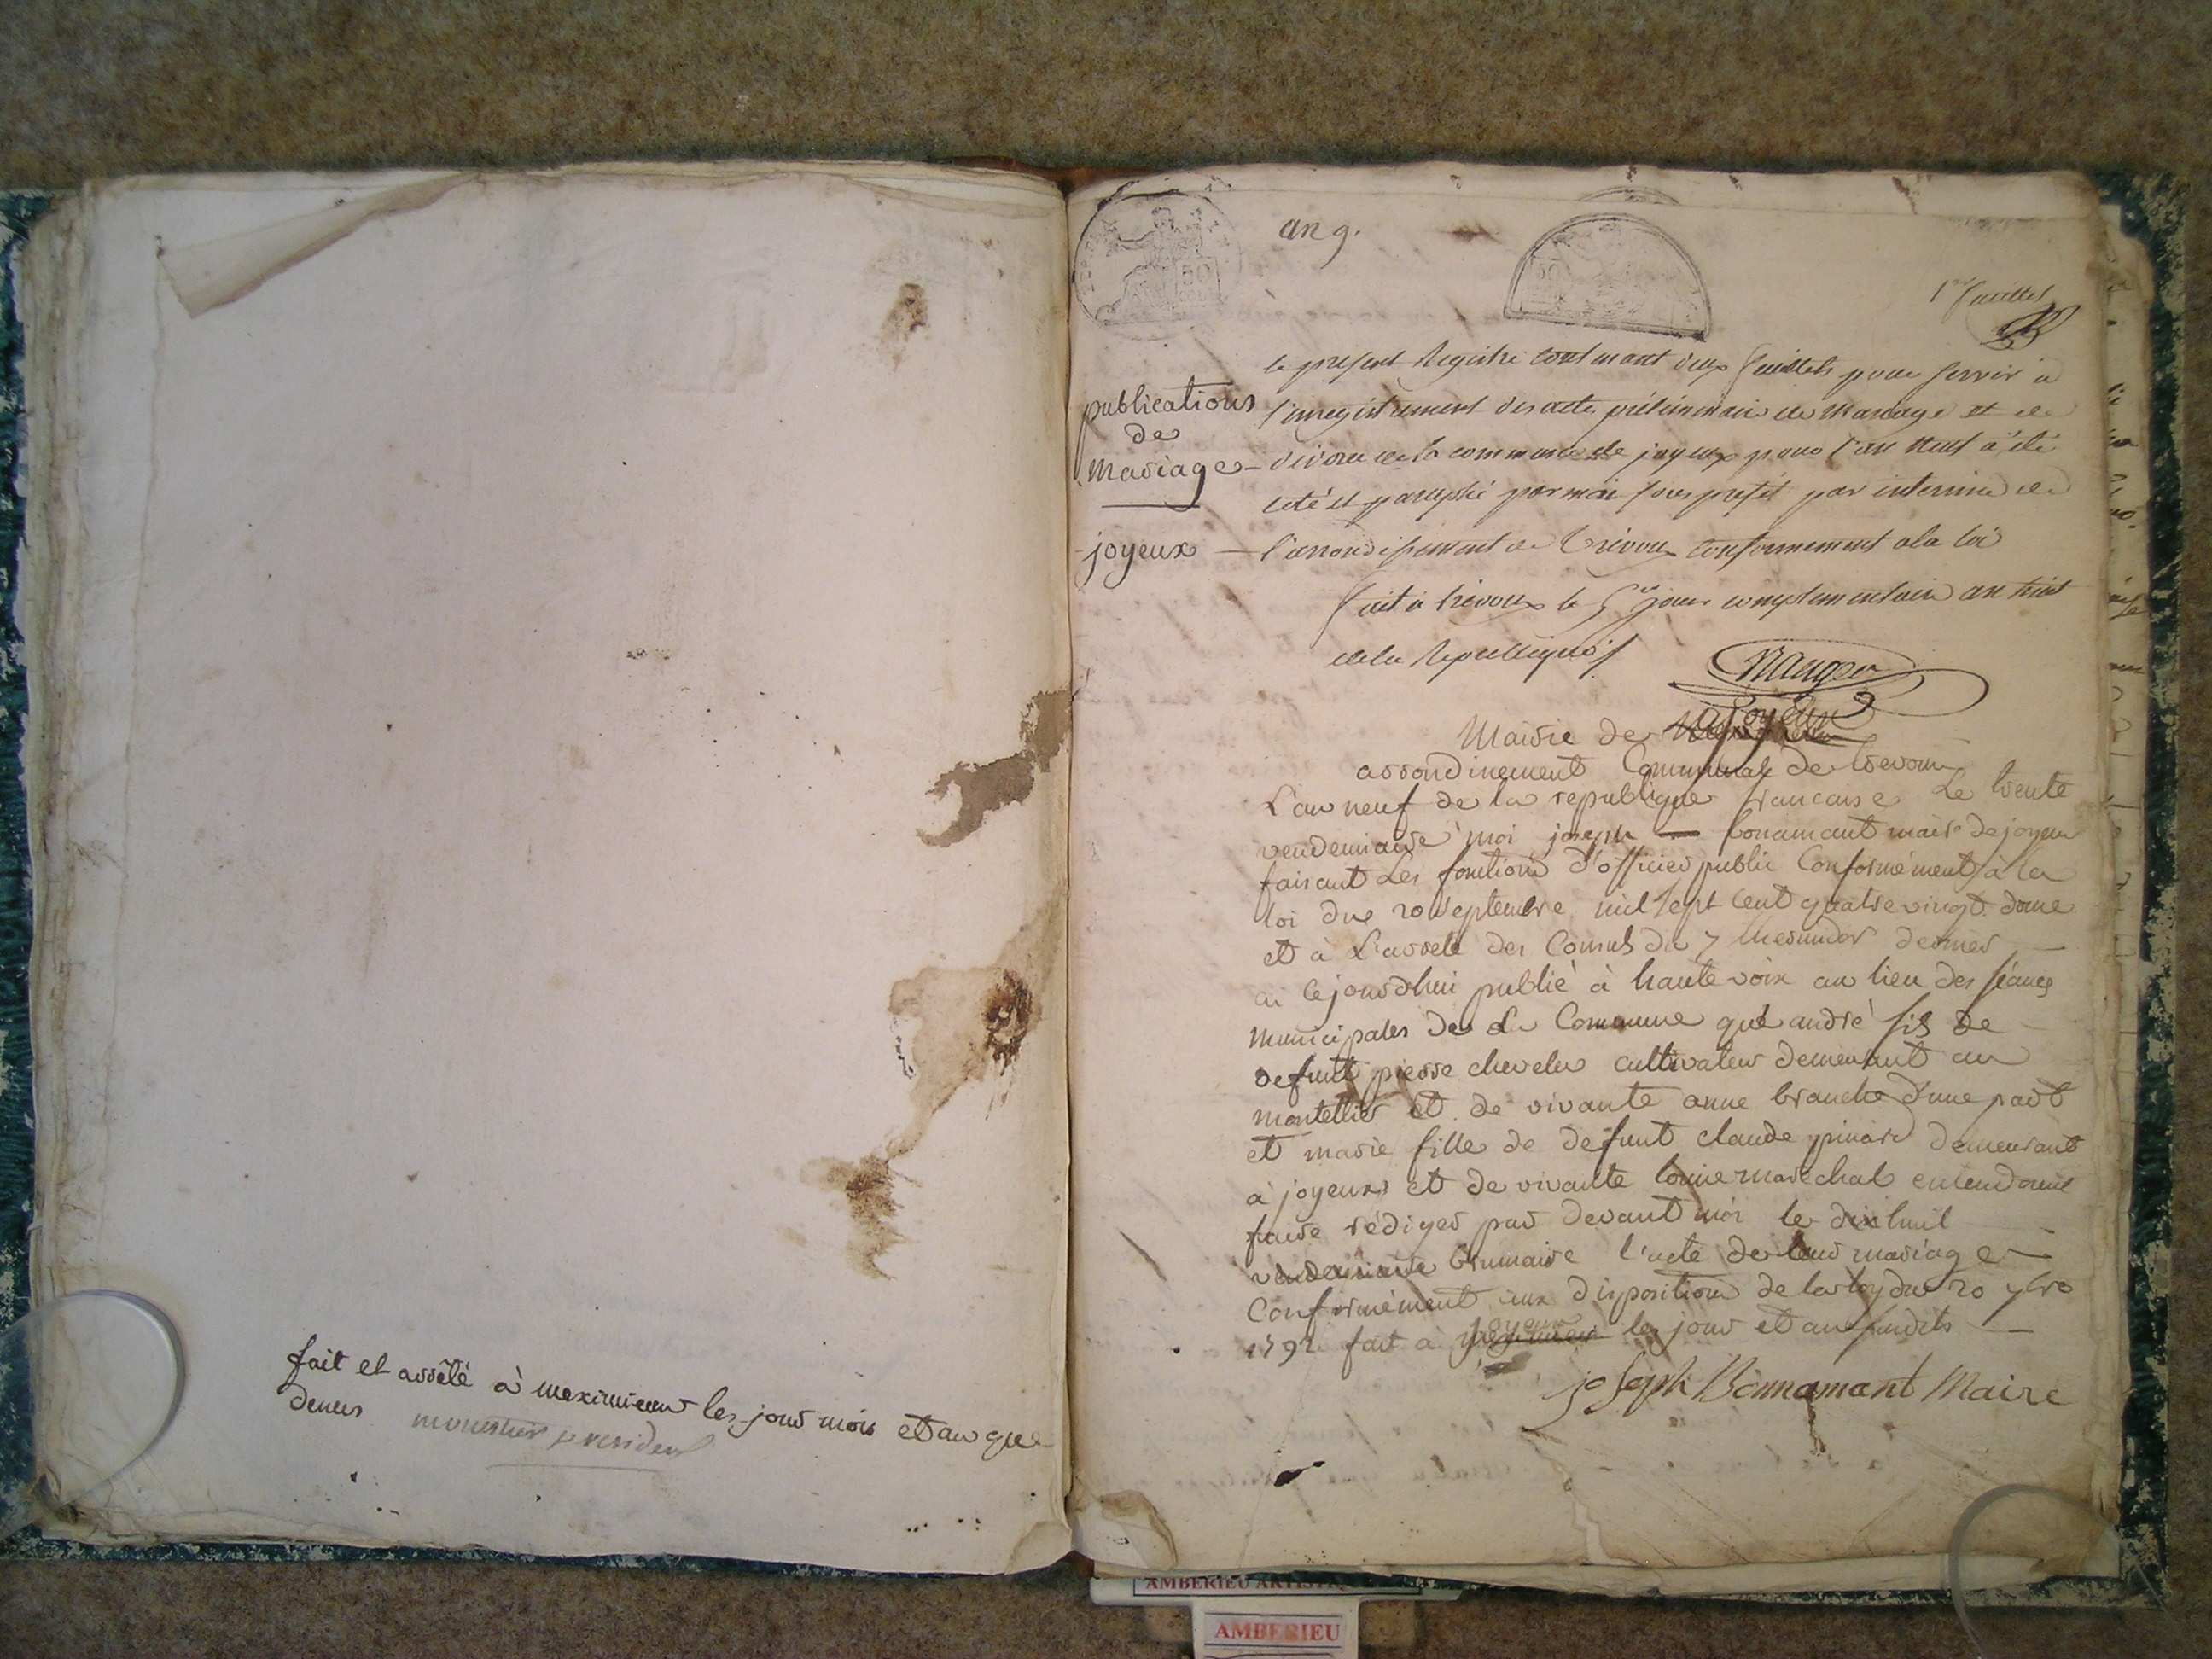 fait et arrêté à meximieux les jour mois et an que
denus monestier president
an 9.
1er feuillet
publications
de
mariage
joyeux
le present Registre contenant deux feuillets pour servir a
l'enregistrement des acte préliminaire de Mariage et de
divorce de la commune de joyeux pour l'an neuf à été
coté et paraphé par moi sous prefet par interim de
l'arrondissement de Trévoux conformement a la loi
fait a trévoux le 5e jour complementaire an huit
de la Republique
Mairie de joyeux
arrondinement Communal de trevoux
L'an neuf de la republique francaise Le trente
vendemiaire moi joseph — bonamant maire de joyeux
faisant Les fonctions d'officier public Conformément à la
loi du 20 septembre mil sept cent quatre vingt douze
et à L'arrete des Consuls du 7 thermidor dernier
ai cejourdhui publié à haute voix au lieu des séances
municipales de La Commune que andré fils de
defunt pierre chevelu cultivateur demeurant au
montellier et de vivante anne branche d'une part
et marie fille de defunt claude pinard demeurant
a joyeux et de vivante marechal entendent
faire rédiger par devant moi le dixhuit
vendemiaire brumaire l'acte de leur mariage
Conformément aux disposition de la loy du 20 7bre
1792 fait a joyeux les jour et an susdits
joseph Bonnamant Maire
50
50
AMBERIEU
AMBERIEU